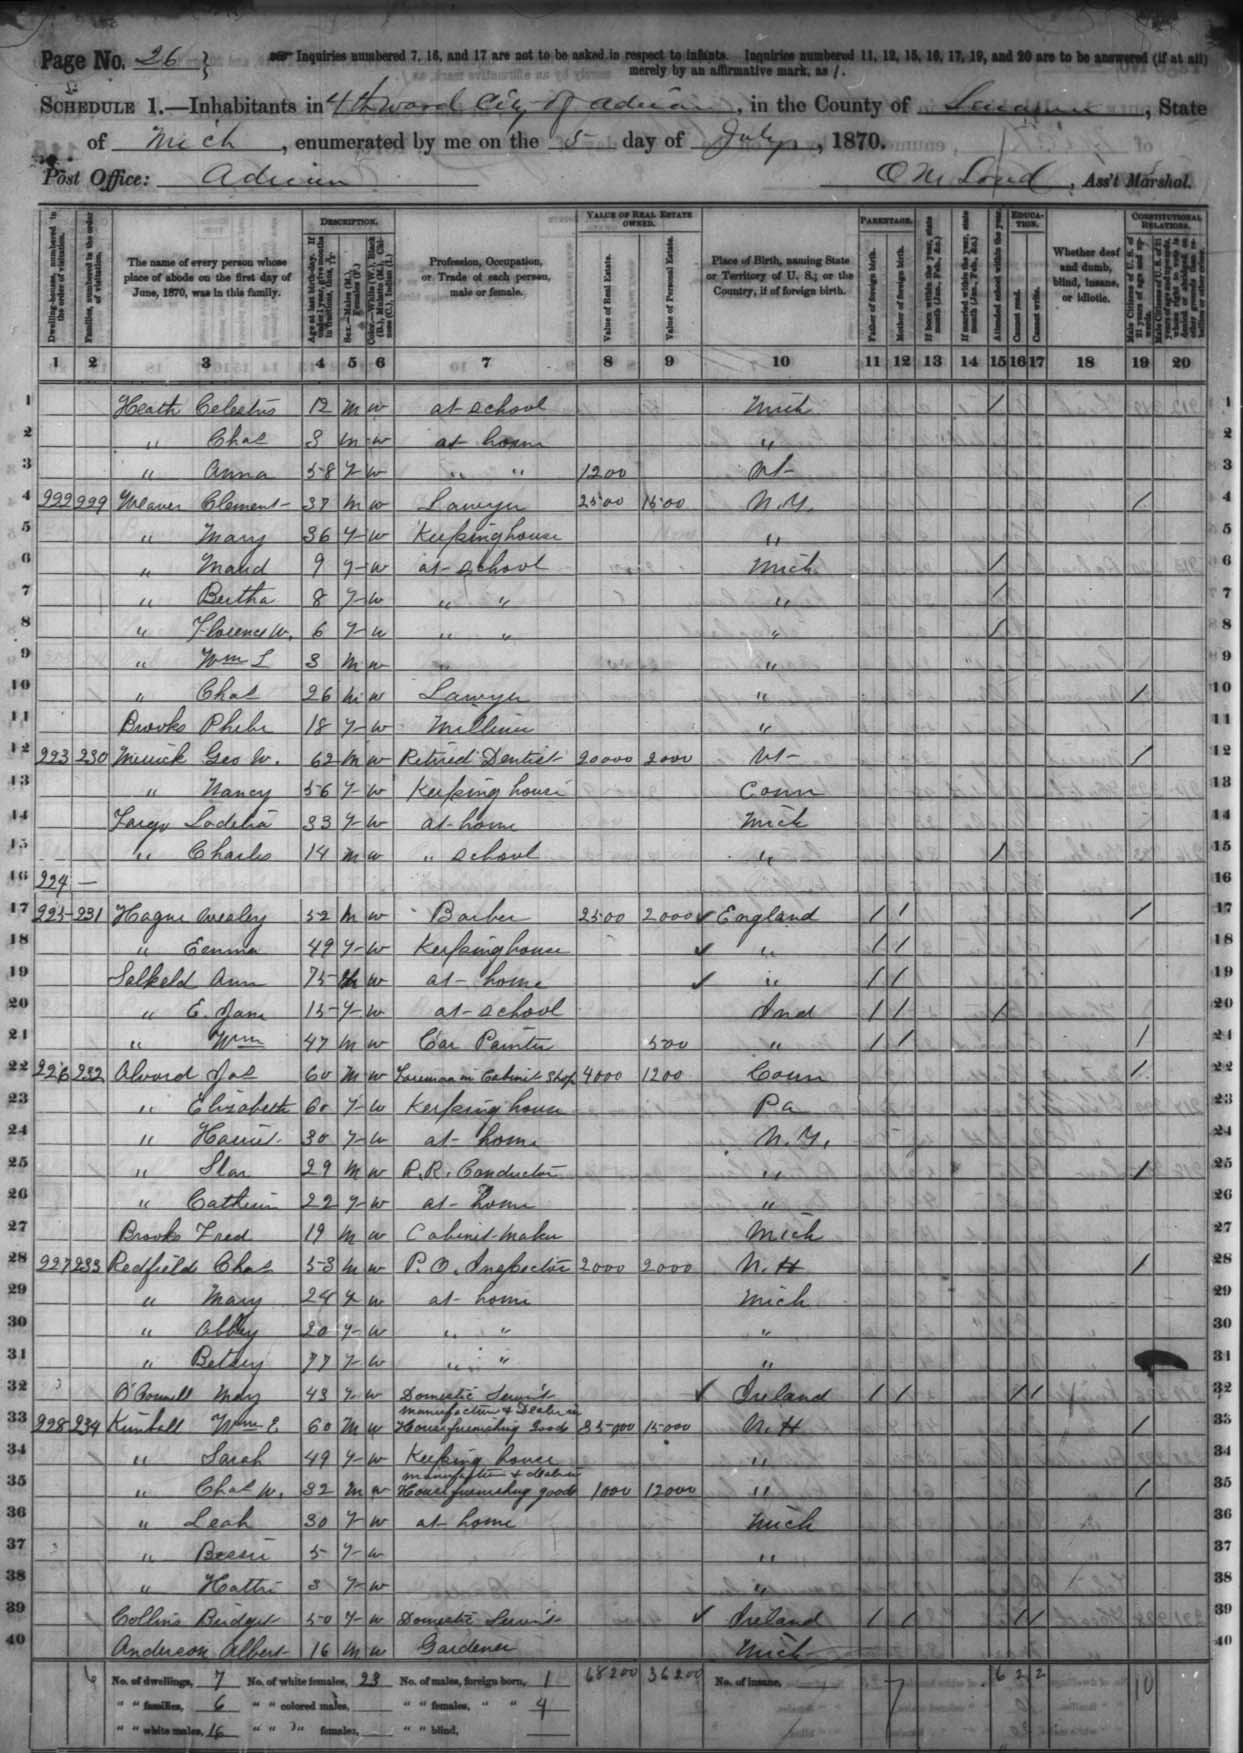 Page No. 26
Inquiries numbered 7, 16, and 17 are not to be asked in respect to infants. Inquiries numbered 11, 12, 15, 16, 17, 19, and 20 are to be answered (if at all)
merely by an affirmative mark, as /.
SCHEDULE 1.—Inhabitants in 4th ward City of Adrian, in the County of Lenawee, State
of Mich, enumerated by me on the 5 day of July, 1870.
Post Office: Adrian O M Loud, Ass't Marshal.
DESCRIPTION. VALUE OF REAL ESTATE OWNED. PARENTAGE. EDUCATION. CONSTITUTIONAL RELATIONS.
Dwelling-houses, numbered in the order of visitation. Families, numbered in the order of visitation. The name of every person whose place of abode on the first day of June, 1870, was in this family. Age at last birth-day. Sex.—Males (M.), Females (F.) Profession, Occupation, or Trade of each person, male or female. Value of Real Estate. Value of Personal Estate. Place of Birth, naming State or Territory of U. S.; or the Country, if of foreign birth. Father of foreign birth. Mother of foreign birth. If born within the year, state month (Jan., Feb., &c.) If married within the year, state month (Jan., Feb., &c.) Attended school within the year. Cannot read. Cannot write. Whether deaf and dumb, blind, insane, or idiotic.
1 2 3 4 5 6 7 8 9 10 11 12 13 14 15 16 17 18 19 20
1 Heath Celestus 12 M W at school Mich / 1
2 " Chas 3 M W at home " 2
3 " Anna 58 F W " " 1200 Vt 3
4 222 229 Weaver Clement 37 M W Lawyer 2500 1500 N.Y. / 4
5 " Mary 36 F W Keeping house " 5
6 " Maud 9 F W at school Mich / 6
7 " Bertha 8 F W " " " / 7
8 " Florence W. 6 F W " " " / 8
9 " Wm L 3 M W " " 9
10 " Chas 26 M W Lawyer " / 10
11 Brooks Phebe 18 F W Milliner " 11
12 223 230 Merrick Geo W. 62 M W Retired Dentist 20000 2000 Vt / 12
13 " Nancy 56 F W Keeping house Conn 13
14 Fargo Lodelia 33 F W at home Mich 14
15 " Charles 14 M W " school " / 15
16 224 — 16
17 225 231 Hague Wesley 52 M W Barber 2500 2000 ✓ England / / / 17
18 " Emma 49 F W Keeping house ✓ " / / 18
19 Salkeld Ann 75 W at home ✓ " / / 19
20 " E. Jane 15 F W at school Ind / / / 20
21 " Wm 47 M W Car Painter 500 " / / / 21
22 226 232 Alvord Jas 60 M W Foreman in Cabinet Shop 4000 1200 Conn / 22
23 " Elizabeth 60 F W Keeping house Pa 23
24 " Harriet 30 F W at home N.Y. 24
25 " 29 M W R.R. Conductor " / 25
26 " Catherin 22 F W at home " 26
27 Brooks Fred 19 M W Cabinet maker Mich 27
28 227 233 Redfield Chas 53 M W P.O. Inspector 2000 2000 N.H / 28
29 " Mary 24 F W at home Mich 29
30 " Abbey 20 F W " " " 30
31 " Betsey 77 F W " " " 31
32 O'Connell Mary 43 F W Domestic Servt ✓ Ireland / / / / 32
33 228 234 Kimball Wm E 60 M W manufacture & Dealer in House furnishing Goods 35000 15000 N.H / 33
34 " Sarah 49 F W Keeping house " 34
35 " Chas W. 32 M W manufacture & dealer in House furnishing goods 1000 12000 " / 35
36 " Leah 30 F W at home Mich 36
37 " Bessie 5 F W " 37
38 " Hattie 3 F W " 38
39 Collins Bridget 50 F W Domestic Servt ✓ Ireland / / / / 39
40 Anderson Albert 16 M W Gardener Mich 40
No. of dwellings, 7 No. of white females, 23 No. of males, foreign born, 1 68200 36200 No. of insane, 7 6 2 2 10
" " families, 6 " " colored males, " " females, " " 4
" " white males, 16 " " " females, " " blind,